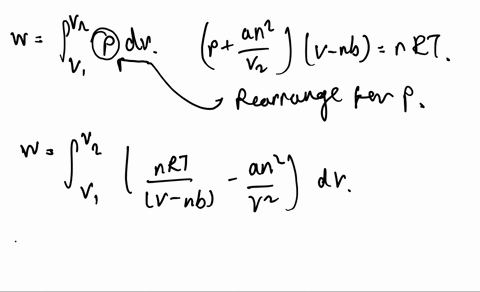 w = ∫_{V_1}^{V_2} p dv. (p + an²/V_2) (v-nb) = nRT.
Rearrange for p.
w = ∫_{V_1}^{V_2} ( nRT/(v-nb) - an²/v² ) dv.